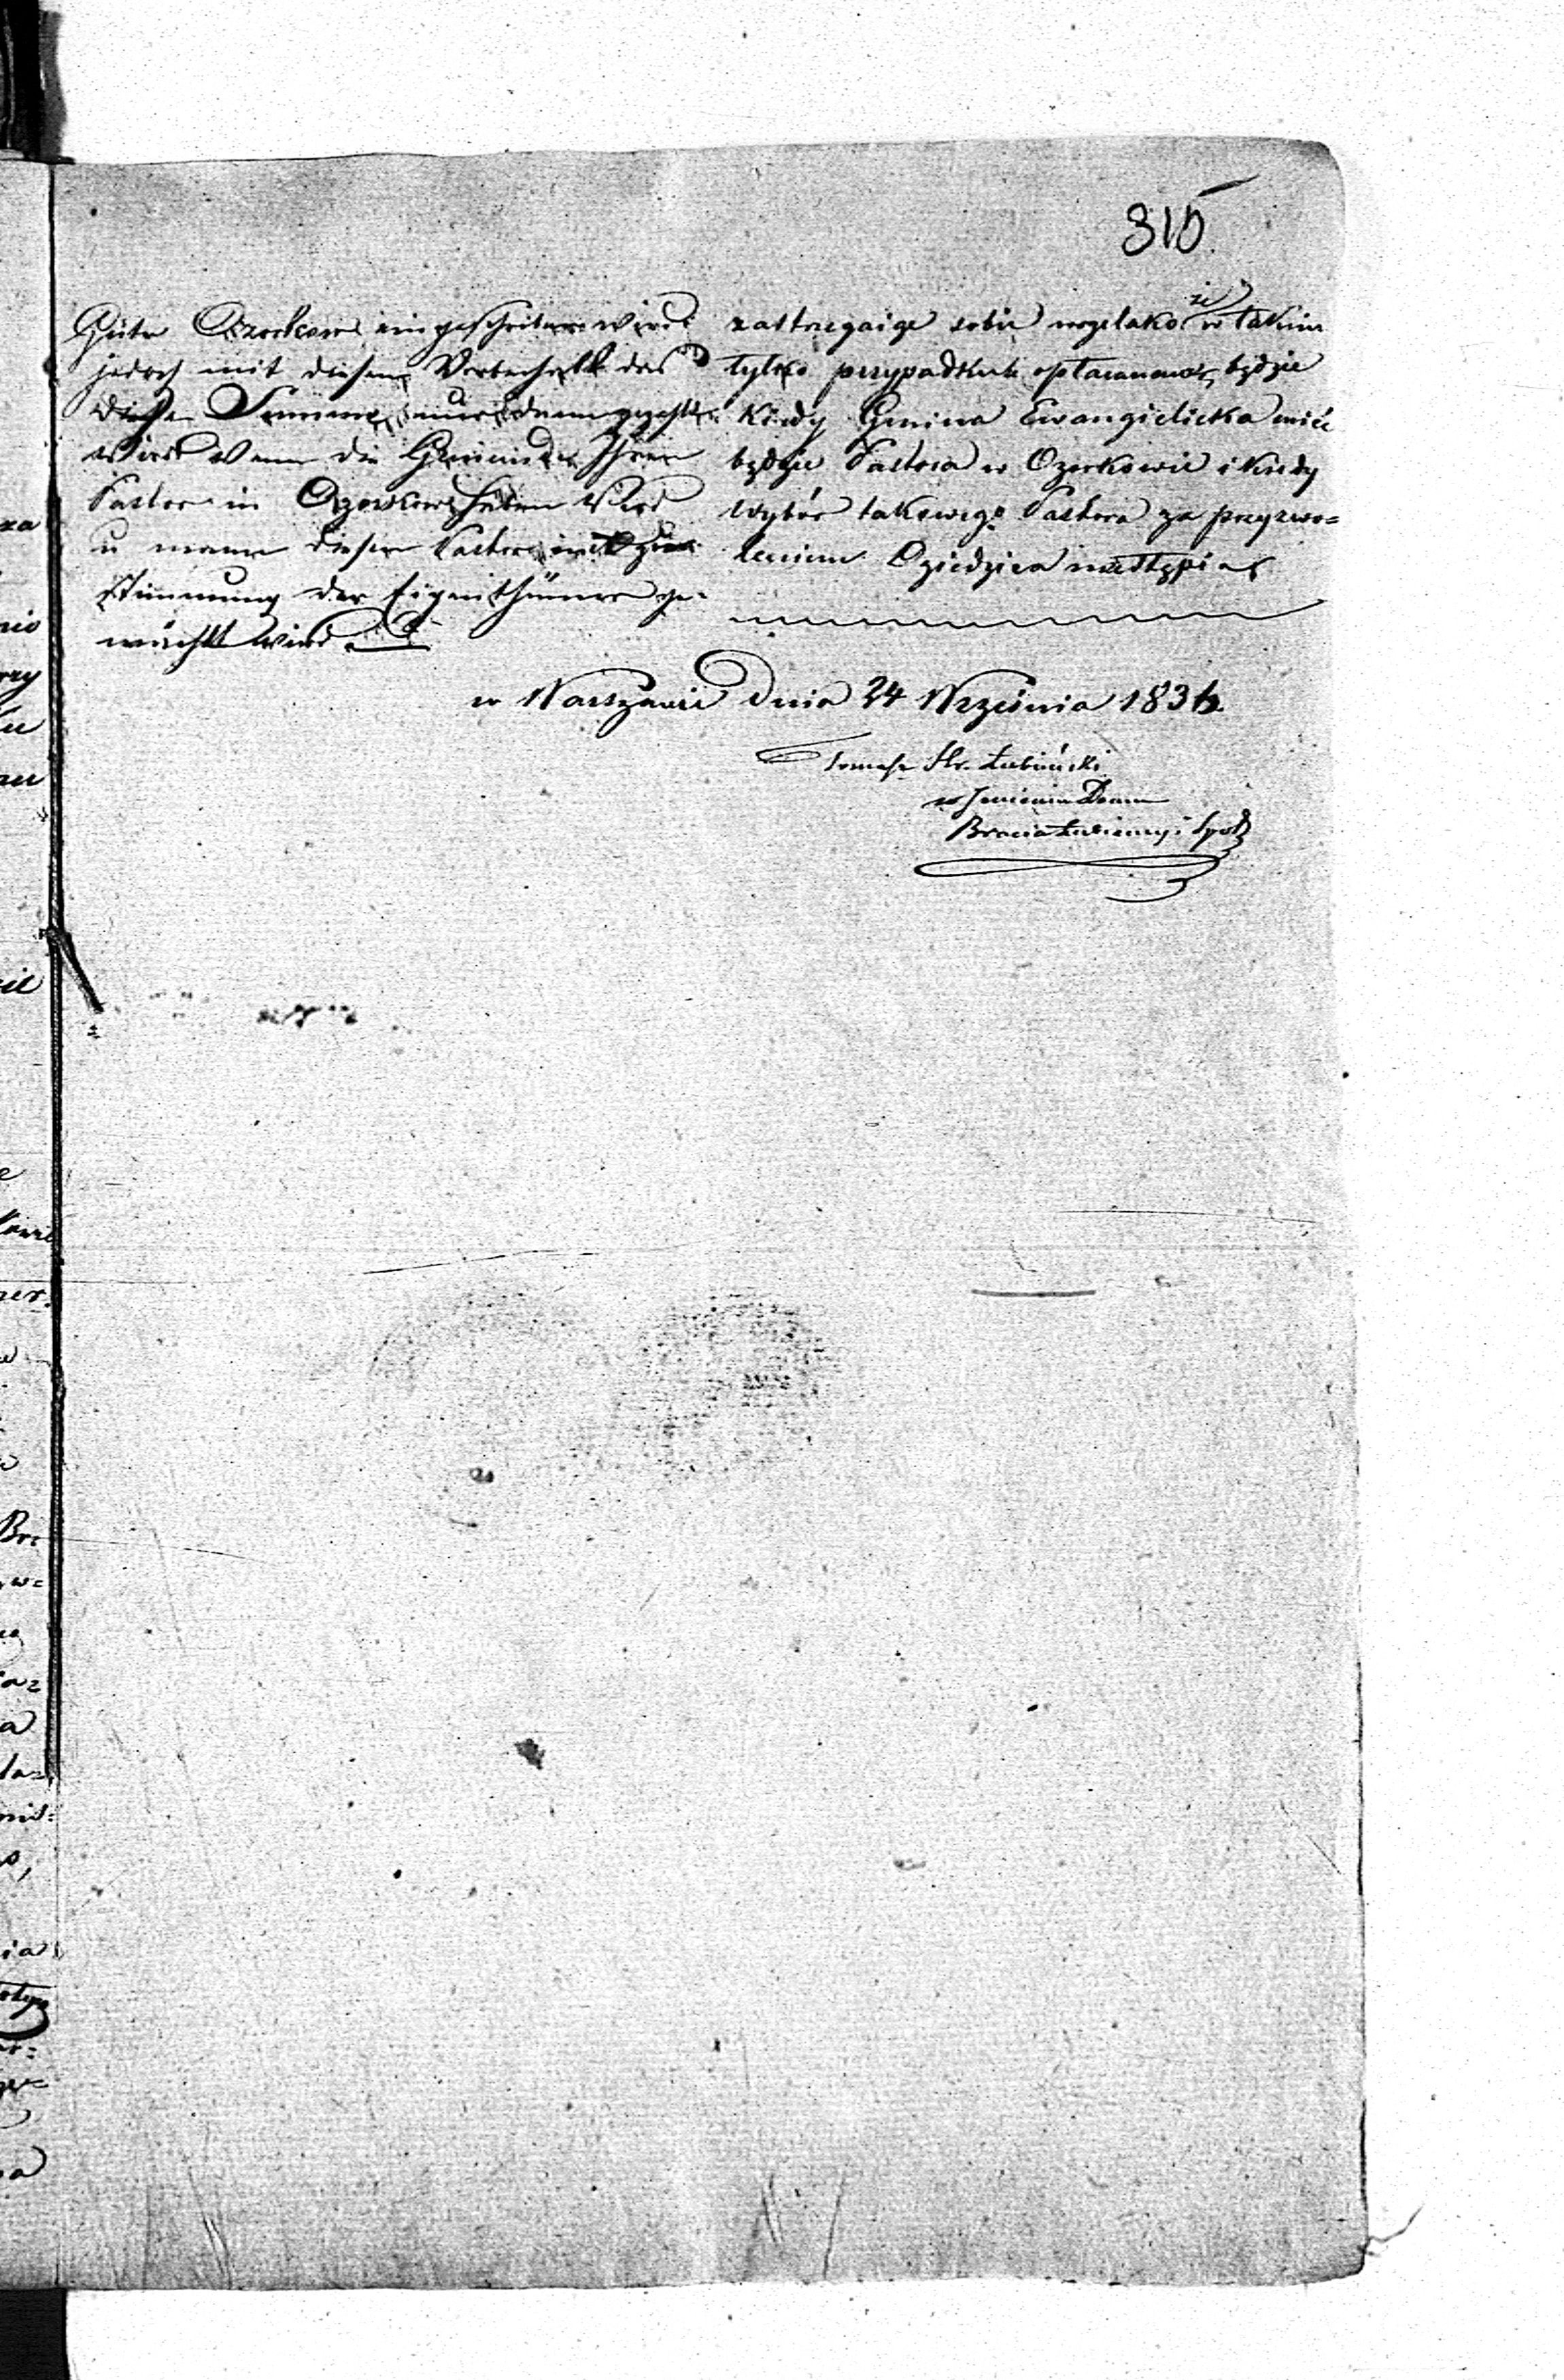 315.
Güter Ozorkow eingeschrieben wird
jedoch mit diesem Vorbehalt das
diese Summe nur dann gezahlt
wird wenn die Gemeinde Ihren
Pastor in Ozorkow haben wird
u wenn dieser Pastor mit Zu-
stimmung der Eigenthümer ge-
wählt wird
zastrzegaiąc sobie wszelako że w takim
tylko przypadku opłacana będzie
kiedy Gmina Ewangielicka mieć
będzie Pastora w Ozorkowie i kiedy
wybór takowego Pastora za przyzwo=
leniem Dziedzica nastąpi
w Warszawie Dnia 24 Września 183
Tomasz Hr. Łubiński
w Imieniu Domu
Bracia Łubieńscy i Spół